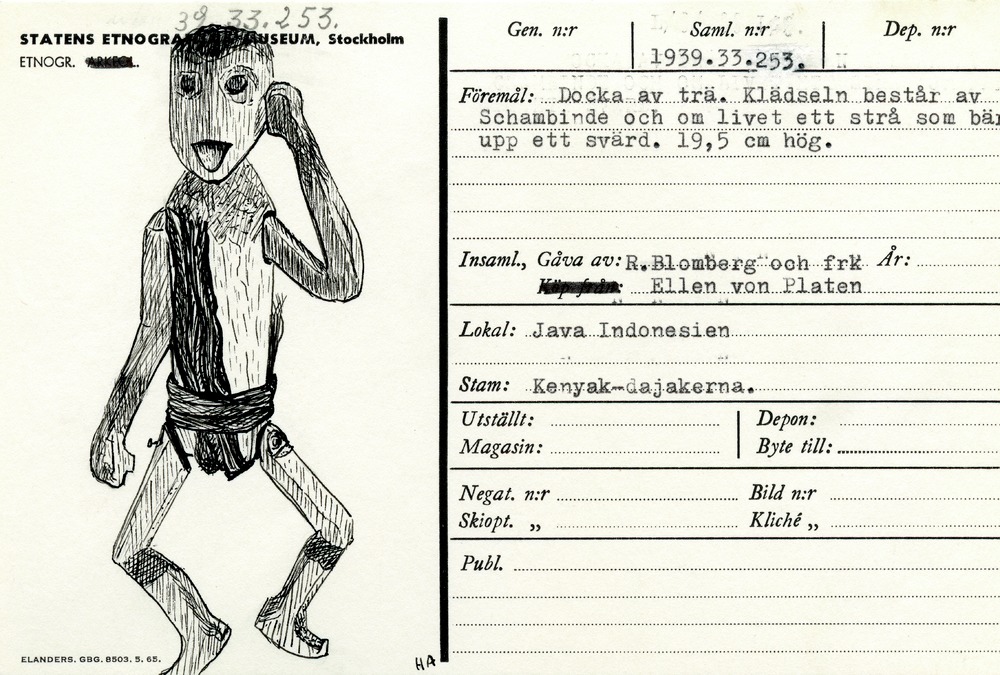 39.33.253.
STATENS ETNOGRA USEUM, Stockholm
ETNOGR.
ELANDERS. GBG. 8503. 5. 65.
HA
Gen. n:r Saml. n:r Dep. n:r
1939.33.253.
Föremål: Docka av trä. Klädseln består av
Schambinde och om livet ett strå som bär
upp ett svärd. 19,5 cm hög.
Insaml., Gåva av: R.Blomberg och frk År:
Köp från: Ellen von Platen
Lokal: Java Indonesien
Stam: Kenyak-dajakerna.
Utställt: Depon:
Magasin: Byte till:
Negat. n:r Bild n:r
Skiopt. „ Kliché „
Publ.